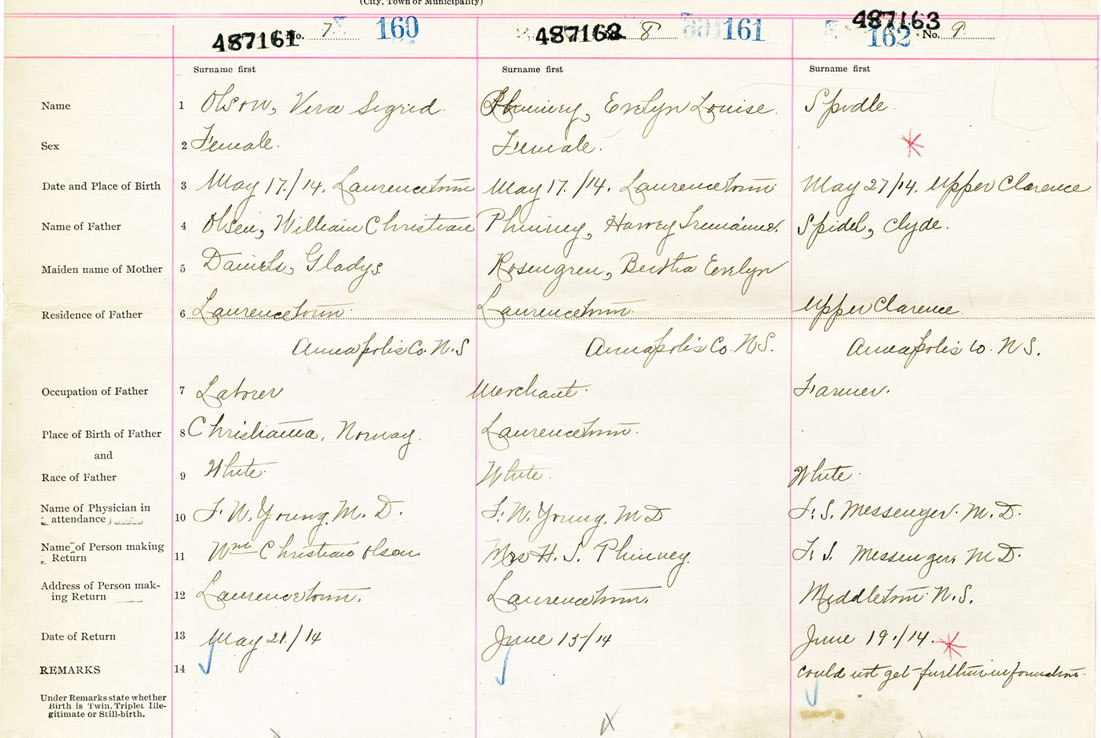 (City, Town or Municipality)
487161 No. 7 160 487162 8 161 487163 162 No. 9
Surname first Surname first Surname first
Name 1 Olson, Vera Sigrid Phinney, Evelyn Louise Spidle
Sex 2 Female Female.
Date and Place of Birth 3 May 17./14. Laurencetown May 17./14. Laurencetown May 27/14. Upper Clarence
Name of Father 4 Olsen, William Christian Phinney, Harvey Spidel, Clyde.
Maiden name of Mother 5 Daniels, Gladys Rosengren, Bertha Evelyn
Residence of Father 6 Laurencetown Laurencetown Upper Clarence
Annapolis Co. N.S Annapolis Co. N.S. Annapolis Co. N.S.
Occupation of Father 7 Laborer Merchant Farmer.
Place of Birth of Father 8 Christiania, Norway. Laurencetown
and
Race of Father 9 White White White
Name of Physician in
attendance 10 F. W. Young. M. D. F. W. Young, M D F. S. Messenger. M. D.
Name of Person making
Return 11 Wm Christian Olson Mrs H. S. Phinney F. S. Messenger, M D.
Address of Person mak-
ing Return 12 Laurencetown. Laurencetown. Middleton N.S.
Date of Return 13 May 21/14 June 15/14 June 19./14.
REMARKS 14 could not get further information
Under Remarks state whether
Birth is Twin, Triplet Ille-
gitimate or Still-birth.